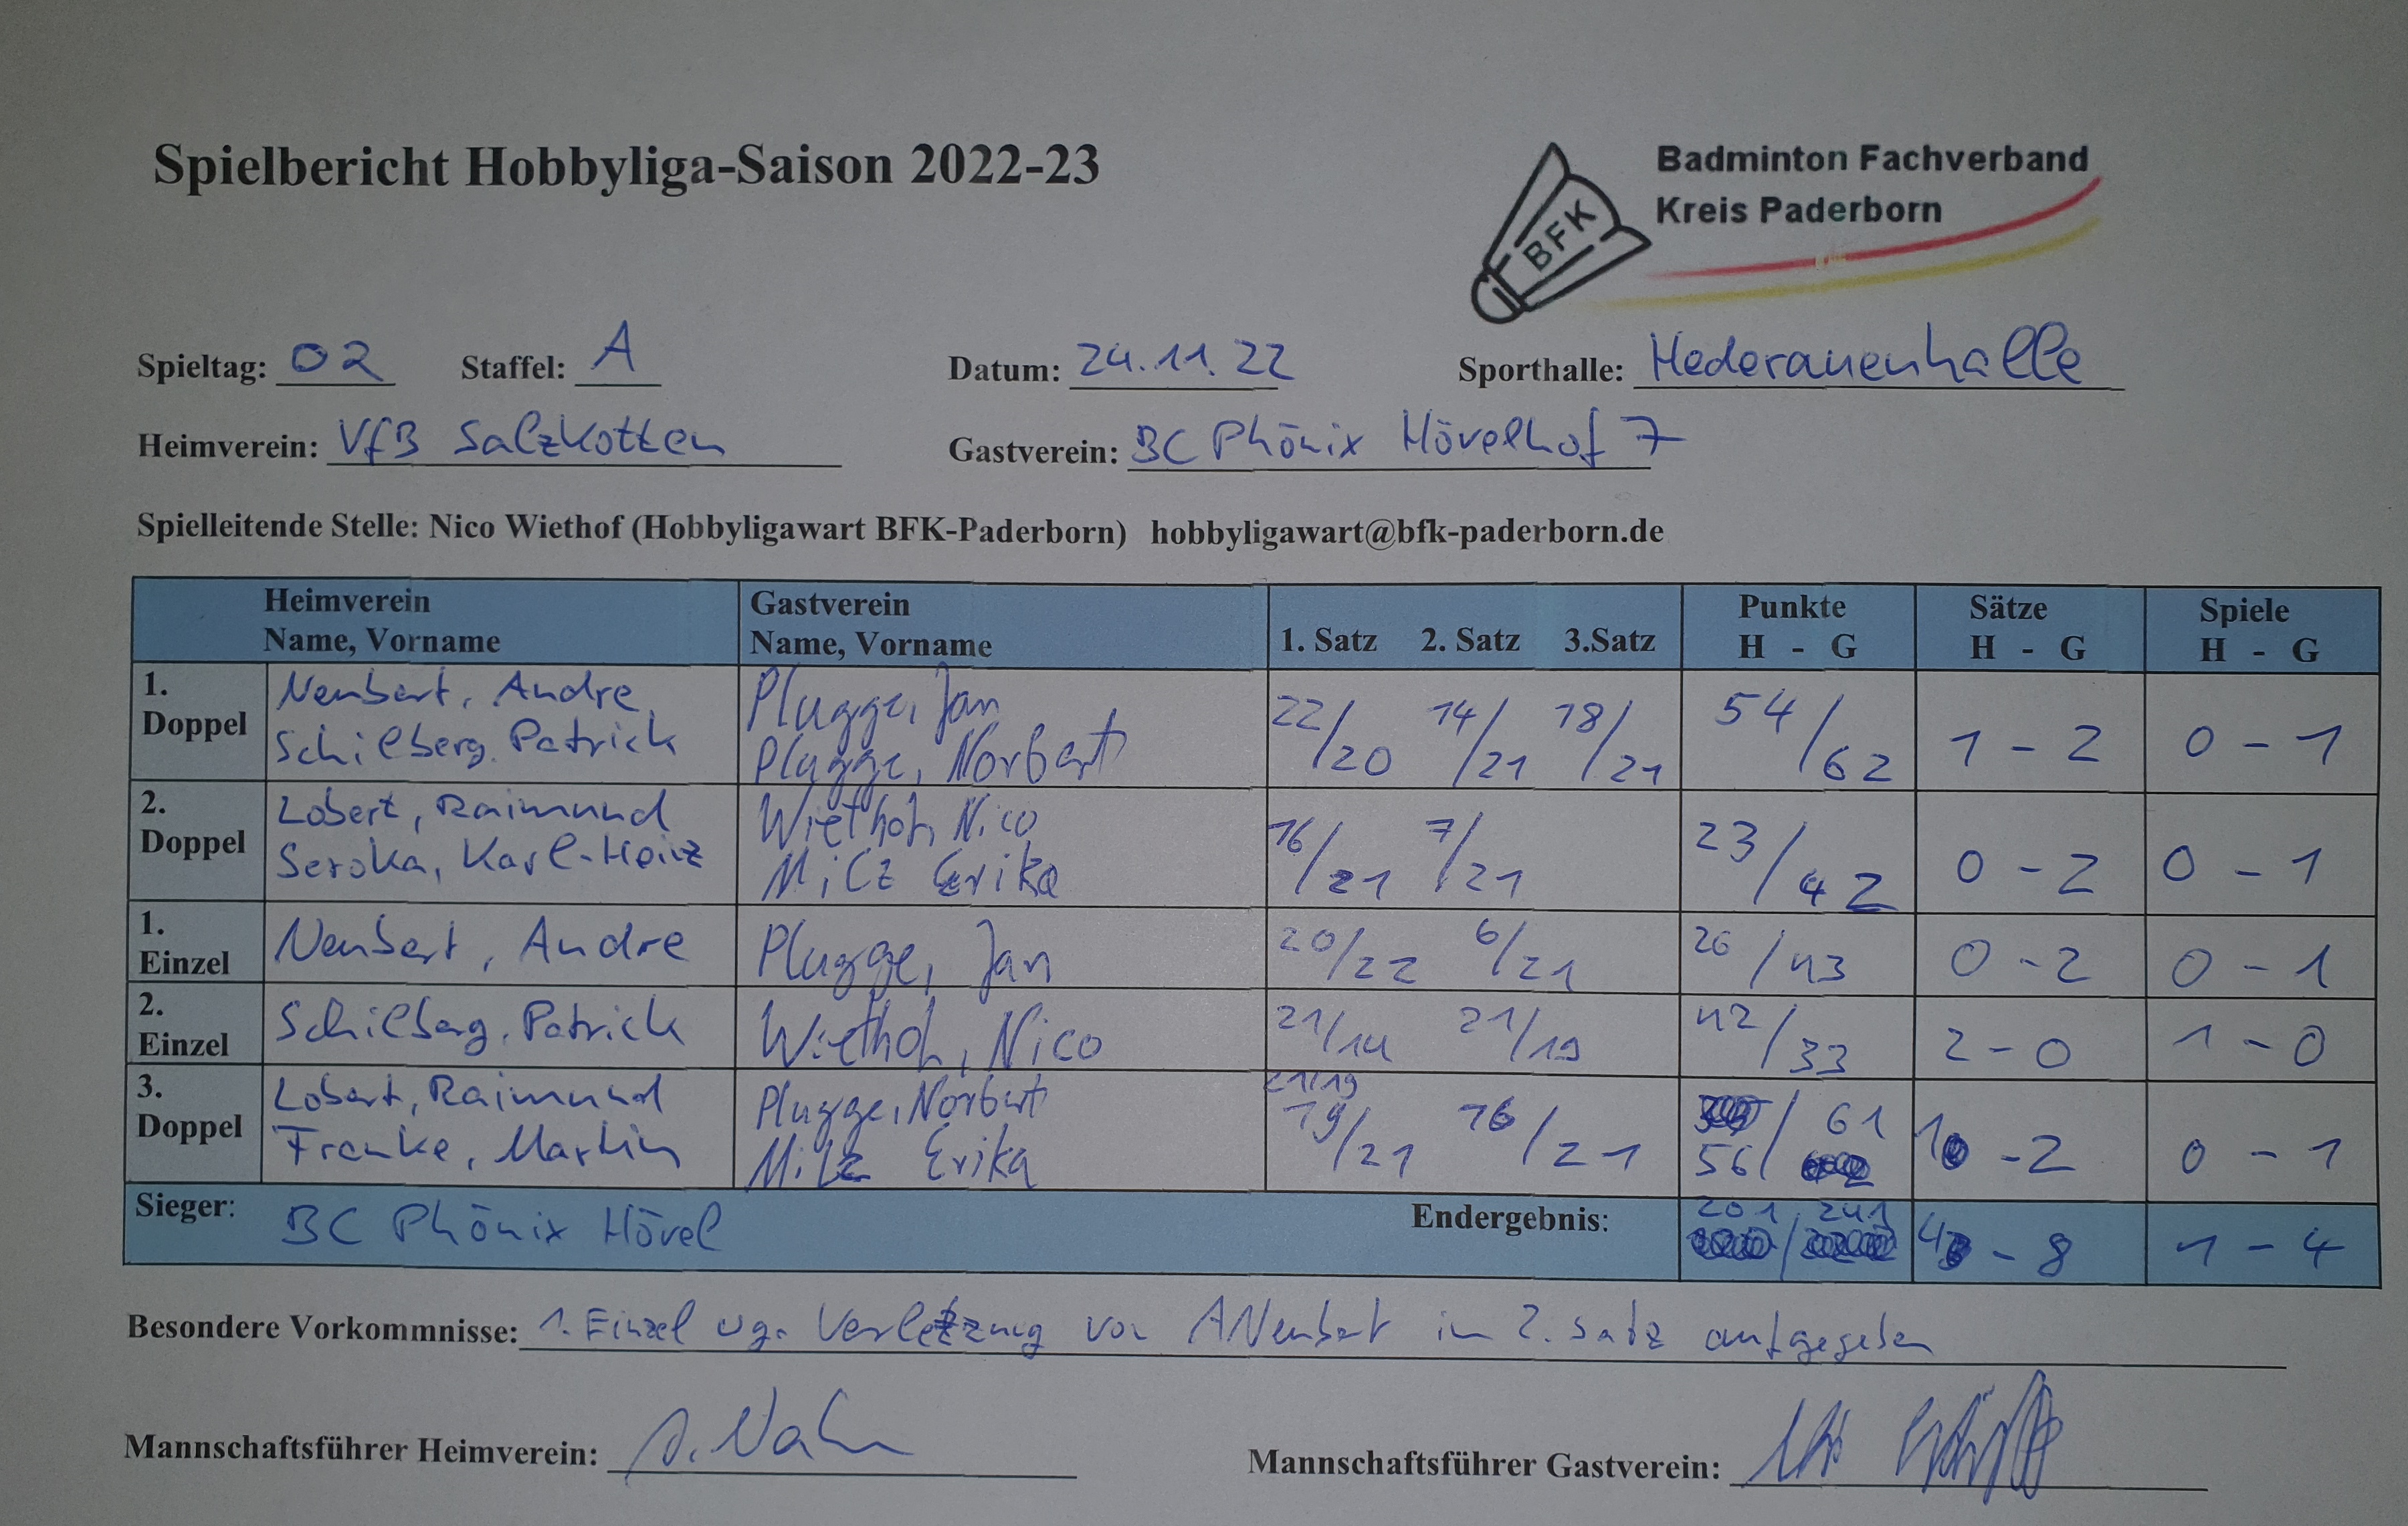 Spielbericht Hobbyliga-Saison 2022-23
Badminton Fachverband
Kreis Paderborn
BFK
Spieltag: 02 Staffel: A Datum: 24.11.22 Sporthalle: Hederauenhalle
Heimverein: VfB Salzkotten Gastverein: BC Phönix Hövelhof 7
Spielleitende Stelle: Nico Wiethof (Hobbyligawart BFK-Paderborn) hobbyligawart@bfk-paderborn.de
Heimverein Gastverein Punkte Sätze Spiele
Name, Vorname Name, Vorname 1. Satz 2. Satz 3.Satz H - G H - G H - G
1. Neubert, Andre, Plugge, Jan 22/20 14/21 18/21 54/62 1 - 2 0 - 1
Doppel Schilberg, Patrick Plugge, Norbert
2. Lobert, Raimund Wiethof, Nico 16/21 7/21 23/42 0 - 2 0 - 1
Doppel Seroka, Karl-Heinz Milz Erika
1. Neubert, Andre Plugge, Jan 20/22 6/21 26/43 0 - 2 0 - 1
Einzel
2. Schilberg, Patrick Wiethof, Nico 21/14 21/19 42/33 2 - 0 1 - 0
Einzel
3. Lobert, Raimund Plugge, Norbert 21/19 19/21 16/21 56/61 1 - 2 0 - 1
Doppel Franke, Martin Milz Erika
Sieger: BC Phönix Hövel Endergebnis: 201/241 4 - 8 1 - 4
Besondere Vorkommnisse: 1. Einzel wg. Verletzung von A Neubert im 2. Satz aufgegeben
Mannschaftsführer Heimverein:
Mannschaftsführer Gastverein: